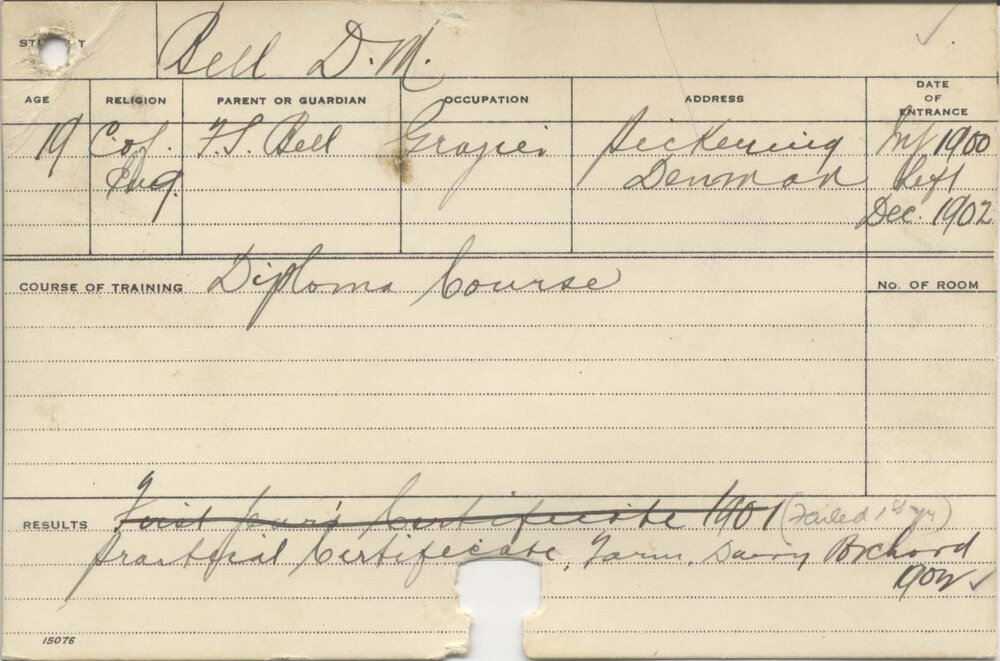 STUDENT Bell D.M.
AGE RELIGION PARENT OR GUARDIAN OCCUPATION ADDRESS DATE OF ENTRANCE
19 C. of. F.S. Bell Grazier Pickering 1900
Eng. Denman Left
Dec. 1902
COURSE OF TRAINING Diploma Course No. OF ROOM
RESULTS First Year's Certificate 1901 (Failed 1st yr)
Practical Certificate, Farm, Dairy Orchard
1902 ✓
15076